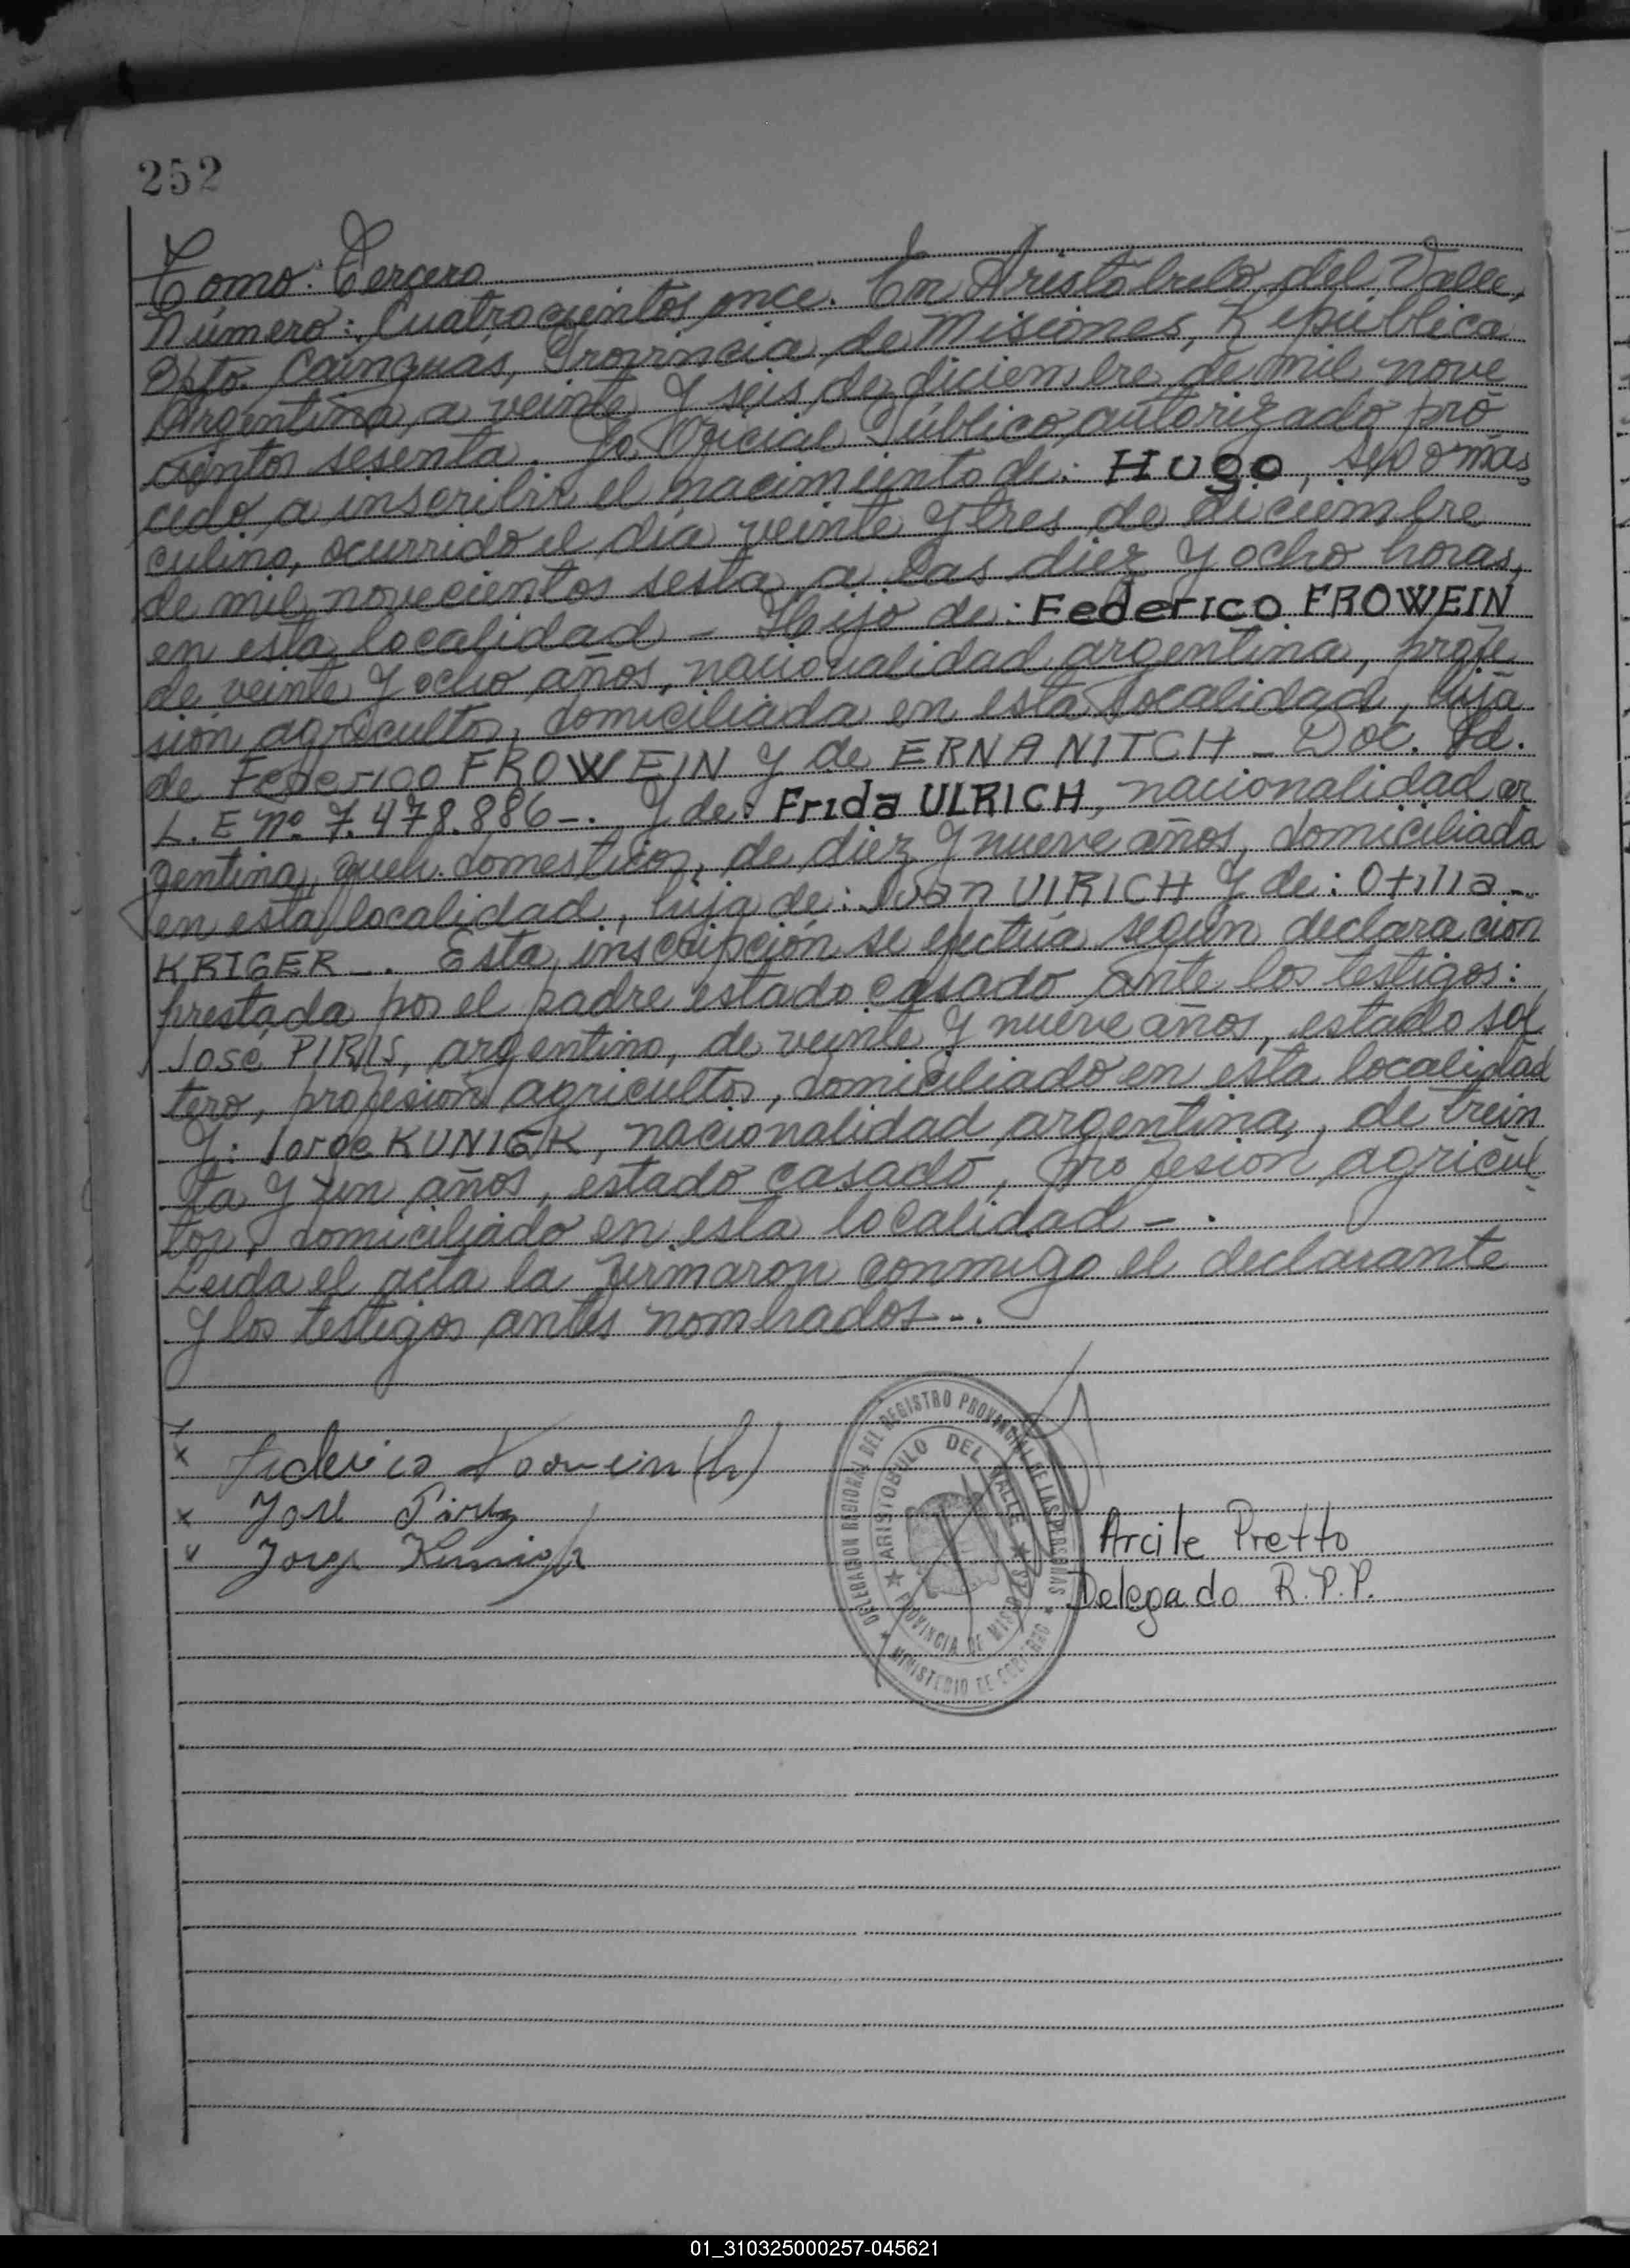 252
Tomo: Tercero
Número: Cuatrocientos once. En Aristobulo del Valle,
Dpto. Cainguás, Provincia de Misiones, República
Argentina, a veinte y seis de diciembre de mil nove
cientos sesenta. Yo Oficial Público autorizado pro
cedo a inscribir el nacimiento de: Hugo, sexo mas
culino, ocurrido el día veinte y tres de diciembre
de mil novecientos sesta a las diez y ocho horas,
en esta localidad - Hijo de: Federico FROWEIN
de veinte y ocho años, nacionalidad argentina, profe
sión agricultor, domiciliada en esta localidad, hija
de Federico FROWEIN y de ERNA NITCH - Doc. Id.
L. E nº. 7.478.886-. Y de: Frida ULRICH, nacionalidad ar
gentina, queh. domesticos, de diez y nueve años, domiciliada
en esta localidad, hija de: Juan ULRICH y de: Otilia -
KRIGER -. Esta inscripción se efectúa según declaración
prestada por el padre estado casado ante los testigos:
José PIRIS, argentino, de veinte y nueve años, estado sol
tero, profesión agricultor, domiciliado en esta localidad
Y: Jorge KUNIGK, nacionalidad argentina, de trein
ta y un años, estado casado, profesión agricul
tor, domiciliado en esta localidad -.
Leida el acta la firmaron conmigo el declarante
y los testigos antes nombrados -.
Federico Frowein (h)
José
Jorge Kunigk
Arcile Pretto
Delegado R.P.P.
DELEGACION REGIONAL DEL REGISTRO PROVINCIAL DE LAS PERSONAS
★ ARISTOBULO DEL VALLE ★
PROVINCIA DE MISIONES
★ MINISTERIO DE GOBIERNO ★
01_310325000257-045621